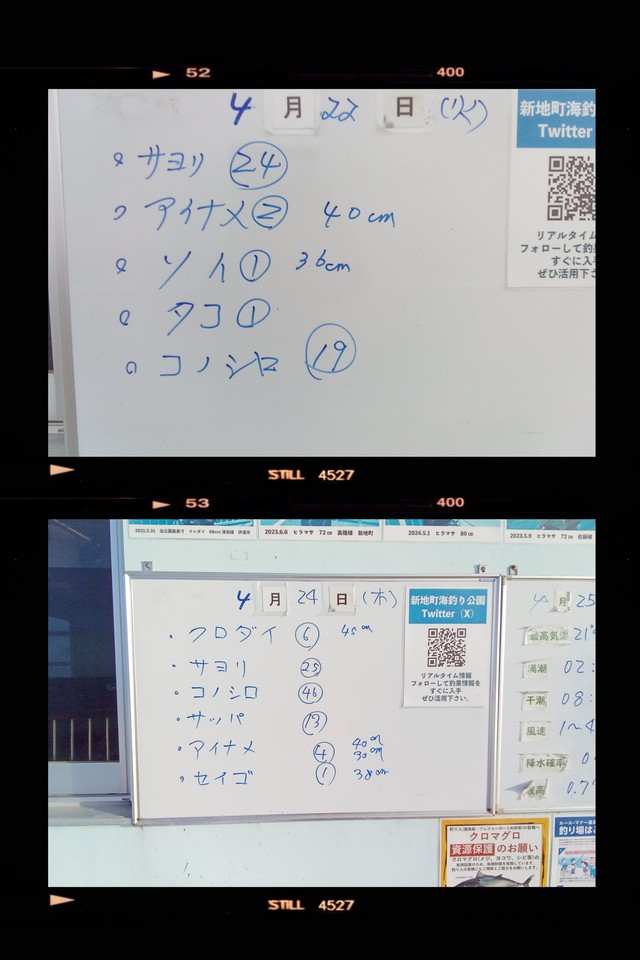 52
400
4月22日(火)
サヨリ 24
アイナメ 2 40cm
ソイ 1 36cm
タコ 1
コノシロ 19
新地町海釣
Twitter
リアルタイム
フォローして釣
すぐに入手
ぜひ活用下さ
STILL 4527
53
400
2023.6.6 ヒラマサ 72cm 高橋様 新地町
2024.5.1 ヒラマサ 80cm
2023.5.9 ヒラマサ 72cm 佐藤様
4月24日(木)
クロダイ 6 45cm
サヨリ 25
コノシロ 46
サッパ 13
アイナメ 4 40cm
30cm
セイゴ 1 38cm
新地町海釣り公園
Twitter(X)
リアルタイム情報
フォローして釣果情報を
すぐに入手
ぜひ活用下さい。
4月25
最高気温 21°
満潮 02:
干潮 08:
風速 1〜4
降水確率 0
0.7
クロマグロ
資源保護のお願い
クロマグロ(メジ、ヨコワ、シビ等)の
釣り場はご
STILL 4527